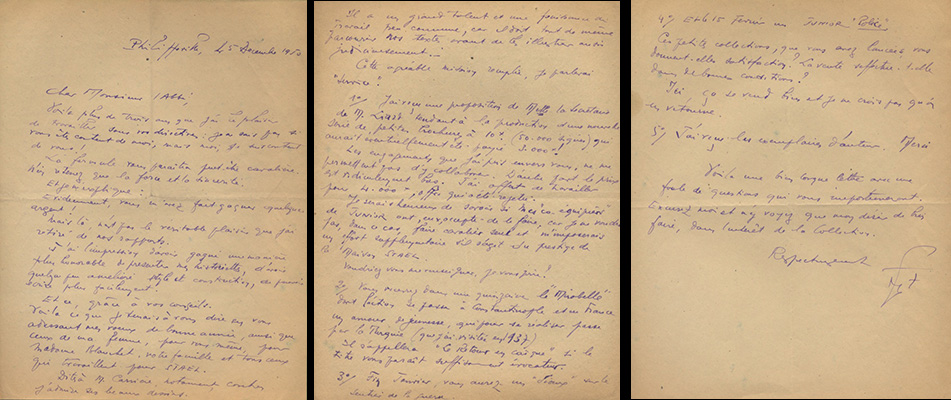 Philippeville, le 5 Décembre 1950
Cher Monsieur l'Abbé,
Voilà plus de trois ans que j'ai le plaisir
de travailler sous vos directives. Je ne sais pas si
vous êtes content de moi, mais moi, je suis content
de vous!
La formule vous paraîtra peut-être cavalière.
N'en retenez que la force et la sincérité.
Et je m'explique:
Evidemment, vous m'avez fait gagner quelque
argent!
Mais là n'est pas le véritable plaisir que j'ai
retiré de nos rapports.
J'ai l'impression d'avoir gagné une manière
plus honorable de présenter mes historiettes, d'avoir
quelque peu amélioré style et construction,
voire plus facilement!
Et ce, grâce à vos conseils.
Voilà ce que je tenais à vous dire en vous
adressant mes voeux de bonne année, ainsi que
ceux de ma femme, pour vous même, pour
Madame Blanchet, votre famille et tous ceux
qui travaillent pour STAEL.
Dites à M. Carrière, notamment combien
j'admire ses beaux dessins.
Il a un grand talent et une
peu commune, car il doit tout de même
parcourir nos textes avant de les illustrer aussi
Cette agréable mission remplie, je parlerai
"service".
1°/ J'ai reçu une proposition de la Secrétaire
de M. tendant à la production d'une nouvelle
série de petites brochures à 10f (50.000 signes) qui
aurait éventuellement été payée 3.000f!
Les engagements que j'ai pris envers vous, ne me
permettent pas d'y collaborer. D'autre part le prix
est ridiculement bas. J'ai offert de travailler
pour 4.000f, offre qui a été rejetée.
de JUNIOR ont,
pas, dans ce cas, faire cavalier seul et m'imposerais
un effort supplémentaire s'il s'agit du prestige de
la Maison STAEL.
Voudriez vous me renseigner, je vous prie?
2°/ Vous recevrez dans une quinzaine le "Mirabelle"
dont l'action se passe à Constantinople et en France
un amour de jeunesse, qui pour se réaliser passe
par la Turquie (que j'ai visitée en 1937)
Il s'appellera "le Retour en caïque" si le
titre vous paraît suffisamment évocateur.
3°/ Fin Janvier, vous aurez un sur le
sentier de la guerre.
4°/ Et le 15 Février un JUNIOR "Police"
Ces petites collections, que vous avez lancées vous
donnent-elles satisfaction? La vente s'effectue-t-elle
dans de bonnes conditions?
Ici ça se vend bien et je ne crois pas qu'on
en retourne.
5°/ J'ai reçu les exemplaires d'auteur. Merci
Voilà une bien longue lettre avec une
foule de questions qui vous importuneront.
Excusez moi et n'y voyez que mon désir de bien
faire, dans l'intérêt de la Collection.
Respectueusement